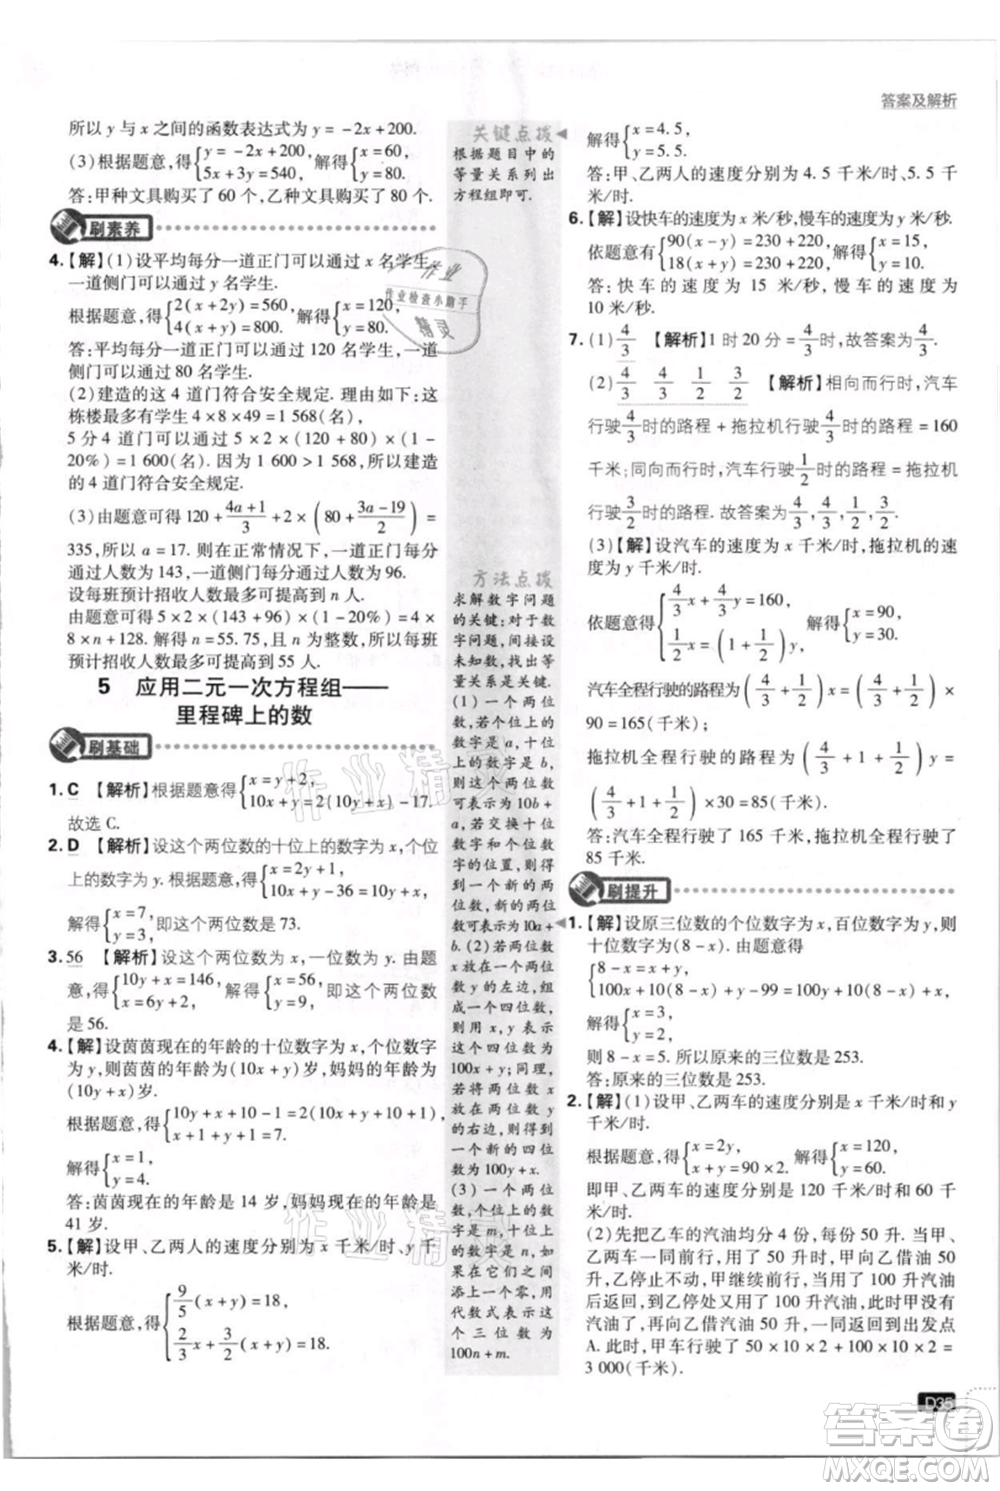 答案及解析
所以 y 与 x 之间的函数表达式为 y = -2x+200.
(3)根据题意,得{y=-2x+200, 5x+3y=540, 解得{x=60, y=80.
答:甲种文具购买了 60 个,乙种文具购买了 80 个.
刷素养
4.【解】(1)设平均每分一道正门可以通过 x 名学生,
一道侧门可以通过 y 名学生.
根据题意,得{2(x+2y)=560, 4(x+y)=800, 解得{x=120, y=80.
答:平均每分一道正门可以通过 120 名学生,一道
侧门可以通过 80 名学生.
(2)建造的这 4 道门符合安全规定.理由如下:这
栋楼最多有学生 4×8×49=1 568(名),
5 分 4 道门可以通过 5×2×(120+80)×(1-
20%)=1 600(名).因为 1 600>1 568,所以建造
的 4 道门符合安全规定.
(3)由题意可得 120+(4a+1)/3+2×(80+(3a-19)/2)=
335,所以 a=17. 则在正常情况下,一道正门每分
通过人数为 143,一道侧门每分通过人数为 96.
设每班预计招收人数最多可提高到 n 人.
由题意可得 5×2×(143+96)×(1-20%)=4×
8×n+128. 解得 n=55.75,且 n 为整数,所以每班
预计招收人数最多可提高到 55 人.
5 应用二元一次方程组——
里程碑上的数
刷基础
1. C 【解析】根据题意,得{x+y=10, 10x+y=2(10y+x)-17.
故选 C.
2. D 【解析】设这个两位数的十位上的数字为 x,个位
上的数字为 y.根据题意,得{x=2y+1, 10x+y-36=10y+x,
解得{x=7, y=3.即这个两位数是 73.
3. 56 【解析】设这个两位数为 x,一位数为 y.由题
意,得{10y+x=146, x=6y+2, 解得{x=56, y=9,即这个两位数
是 56.
4.【解】设茵茵现在的年龄的十位数字为 x,个位数字
为 y,则茵茵的年龄为(10x+y)岁,妈妈的年龄为
(10y+x)岁.
根据题意,得{10y+x+10-1=2(10x+y+10)+1, y=4x,
解得{x=1, y=4.
答:茵茵现在的年龄是 14 岁,妈妈现在的年龄是
41 岁.
5.【解】设甲、乙两人的速度分别为 x 千米/时、y 千
米/时.
根据题意,得{9/5(x+y)=18, 2/3x+3/2(x+y)=18,
关键点拨
根据题目中的
等量关系列出
方程组即可.
方法点拨
求解数字问题
的关键:对于数
字问题,间接设
未知数,找出等
量关系是关键.
(1)一个两位
数,若个位上的
数字是 a,十位
上的数字是 b,
则这个两位数
可表示为 10b+
a,若交换十位
数字和个位数
字的位置,则得
到一个新的两
位数,新的两位
数可表示为10a+
b.(2)若两位数
x 放在一个两位
数 y 的左边,组
成一个四位数,
则用 x,y 表示
这个四位数为
100x+y;同理,
若将两位数 x
放在两位数 y
的右边,得到一
个新的四位
数为 100y+x.
(3)一个两位
数,十位上的数
字是 m,个位上
的数字是 n,如
果在它们之间
添上一个零,用
代数式表示这
个三位数为
100m+n.
解得{x=4.5, y=5.5.
答:甲、乙两人的速度分别为 4.5 千米/时、5.5 千
米/时.
6.【解】设快车的速度为 x 米/秒,慢车的速度为 y 米/秒.
依题意有{90(x-y)=230+220, 18(x+y)=230+220,解得{x=15, y=10.
答:快车的速度为 15 米/秒,慢车的速度为
10 米/秒.
7.(1)4/3 【解析】1 时 20 分=4/3时,故答案为4/3.
(2)4/3 4/3 1/2 3/2 【解析】相向而行时,汽车
行驶4/3时的路程+拖拉机行驶4/3时的路程=160
千米;同向而行时,汽车行驶1/2时的路程=拖拉机
行驶3/2时的路程.故答案为4/3,4/3,1/2,3/2.
(3)【解】设汽车的速度为 x 千米/时,拖拉机的速
度为 y 千米/时.
依题意得{4/3x+4/3y=160, 1/2x=(1+1/2)y, 解得{x=90, y=30.
汽车全程行驶的路程为(4/3+1/2)x=(4/3+1/2)×
90=165(千米);
拖拉机全程行驶的路程为(4/3+1+1/2)y=
(4/3+1+1/2)×30=85(千米).
答:汽车全程行驶了 165 千米,拖拉机全程行驶了
85 千米.
刷提升
1.【解】设原三位数的个位数字为 x,百位数字为 y,则
十位数字为(8-x).由题意得
{8-x=x+y, 100x+10(8-x)+y-99=100y+10(8-x)+x,
解得{x=3, y=2,
则 8-x=5.所以原来的三位数是 253.
答:原来的三位数是 253.
2.【解】(1)设甲、乙两车的速度分别是 x 千米/时和 y
千米/时.
根据题意,得{x=2y, (x+y)×1=90×2.解得{x=120, y=60.
即甲、乙两车的速度分别是 120 千米/时、60 千米/时.
(2)先把乙车的汽油均分 4 份,每份 50 升.当甲、
乙两车同行至 B 处时,用了 50 升,甲向乙借油 50
升,乙停止不动,甲继续前行,当用了 100 升汽油
后返回,到乙停处又用了 100 升汽油,此时甲没有
油了,再向乙借油 50 升,两车同时返回到出发点
A.此时,甲车行驶了 50×10×2+100×10×2=
3 000(千米).
D35
作业检查小助手
作业
精灵
作业精灵
作业精灵
答案圈
MXQE.COM